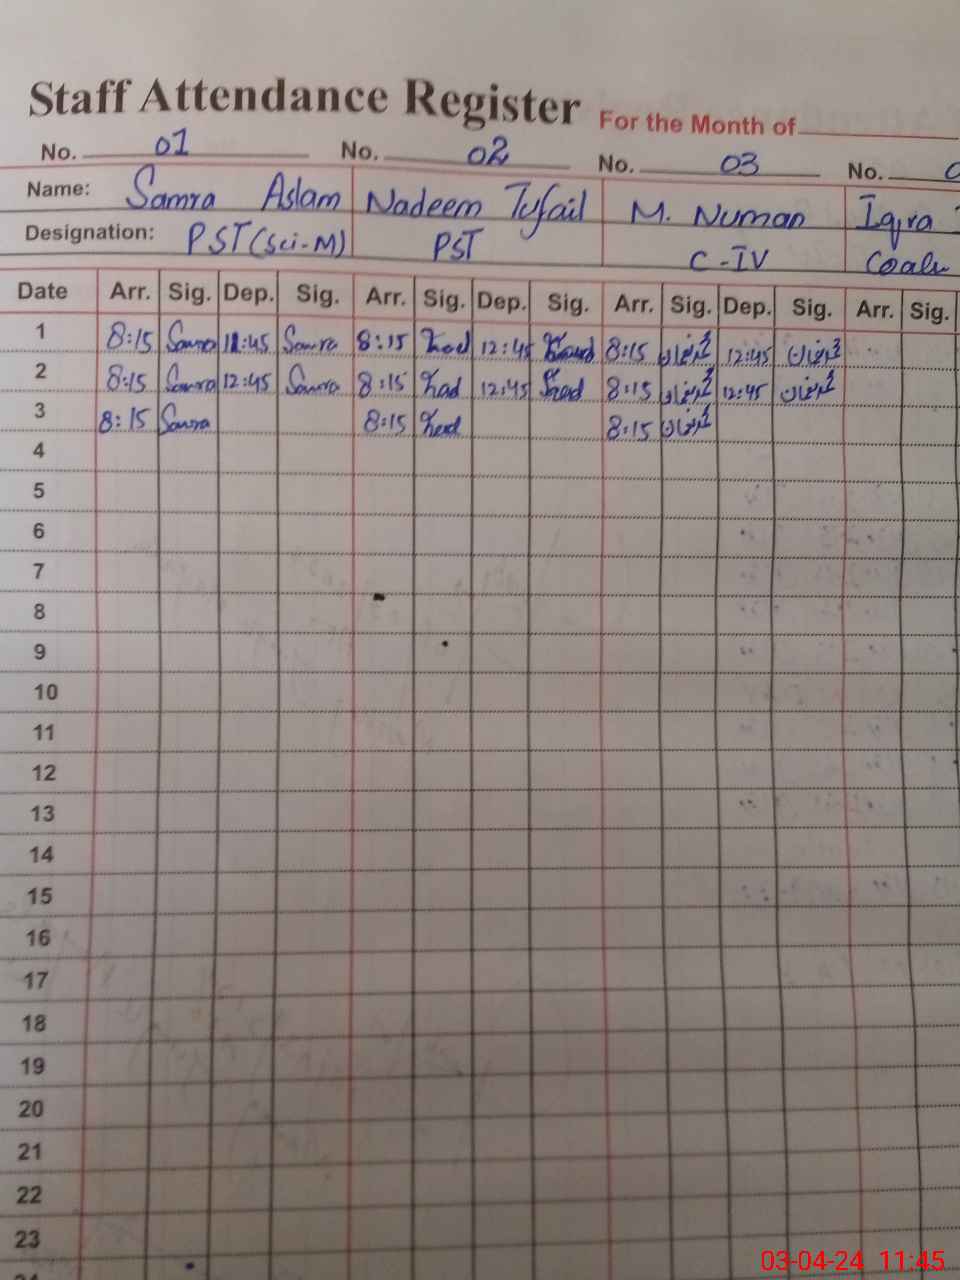 Staff Attendance Register For the Month of
No. 01 No. 02 No. 03 No.
Name: Samra Aslam Nadeem Tufail M. Numan Iqra
Designation: PST(Sci-M) PST C-IV
Date Arr. Sig. Dep. Sig. Arr. Sig. Dep. Sig. Arr. Sig. Dep. Sig. Arr. Sig.
1 8:15 Samra 12:45 Samra 8:15 12:45 8:15 12:45
2 8:15 Samra 12:45 Samra 8:15 12:45 8:15 12:45
3 8:15 Samra 8:15 8:15
4
5
6
7
8
9
10
11
12
13
14
15
16
17
18
19
20
21
22
23
03-04-24 11:45